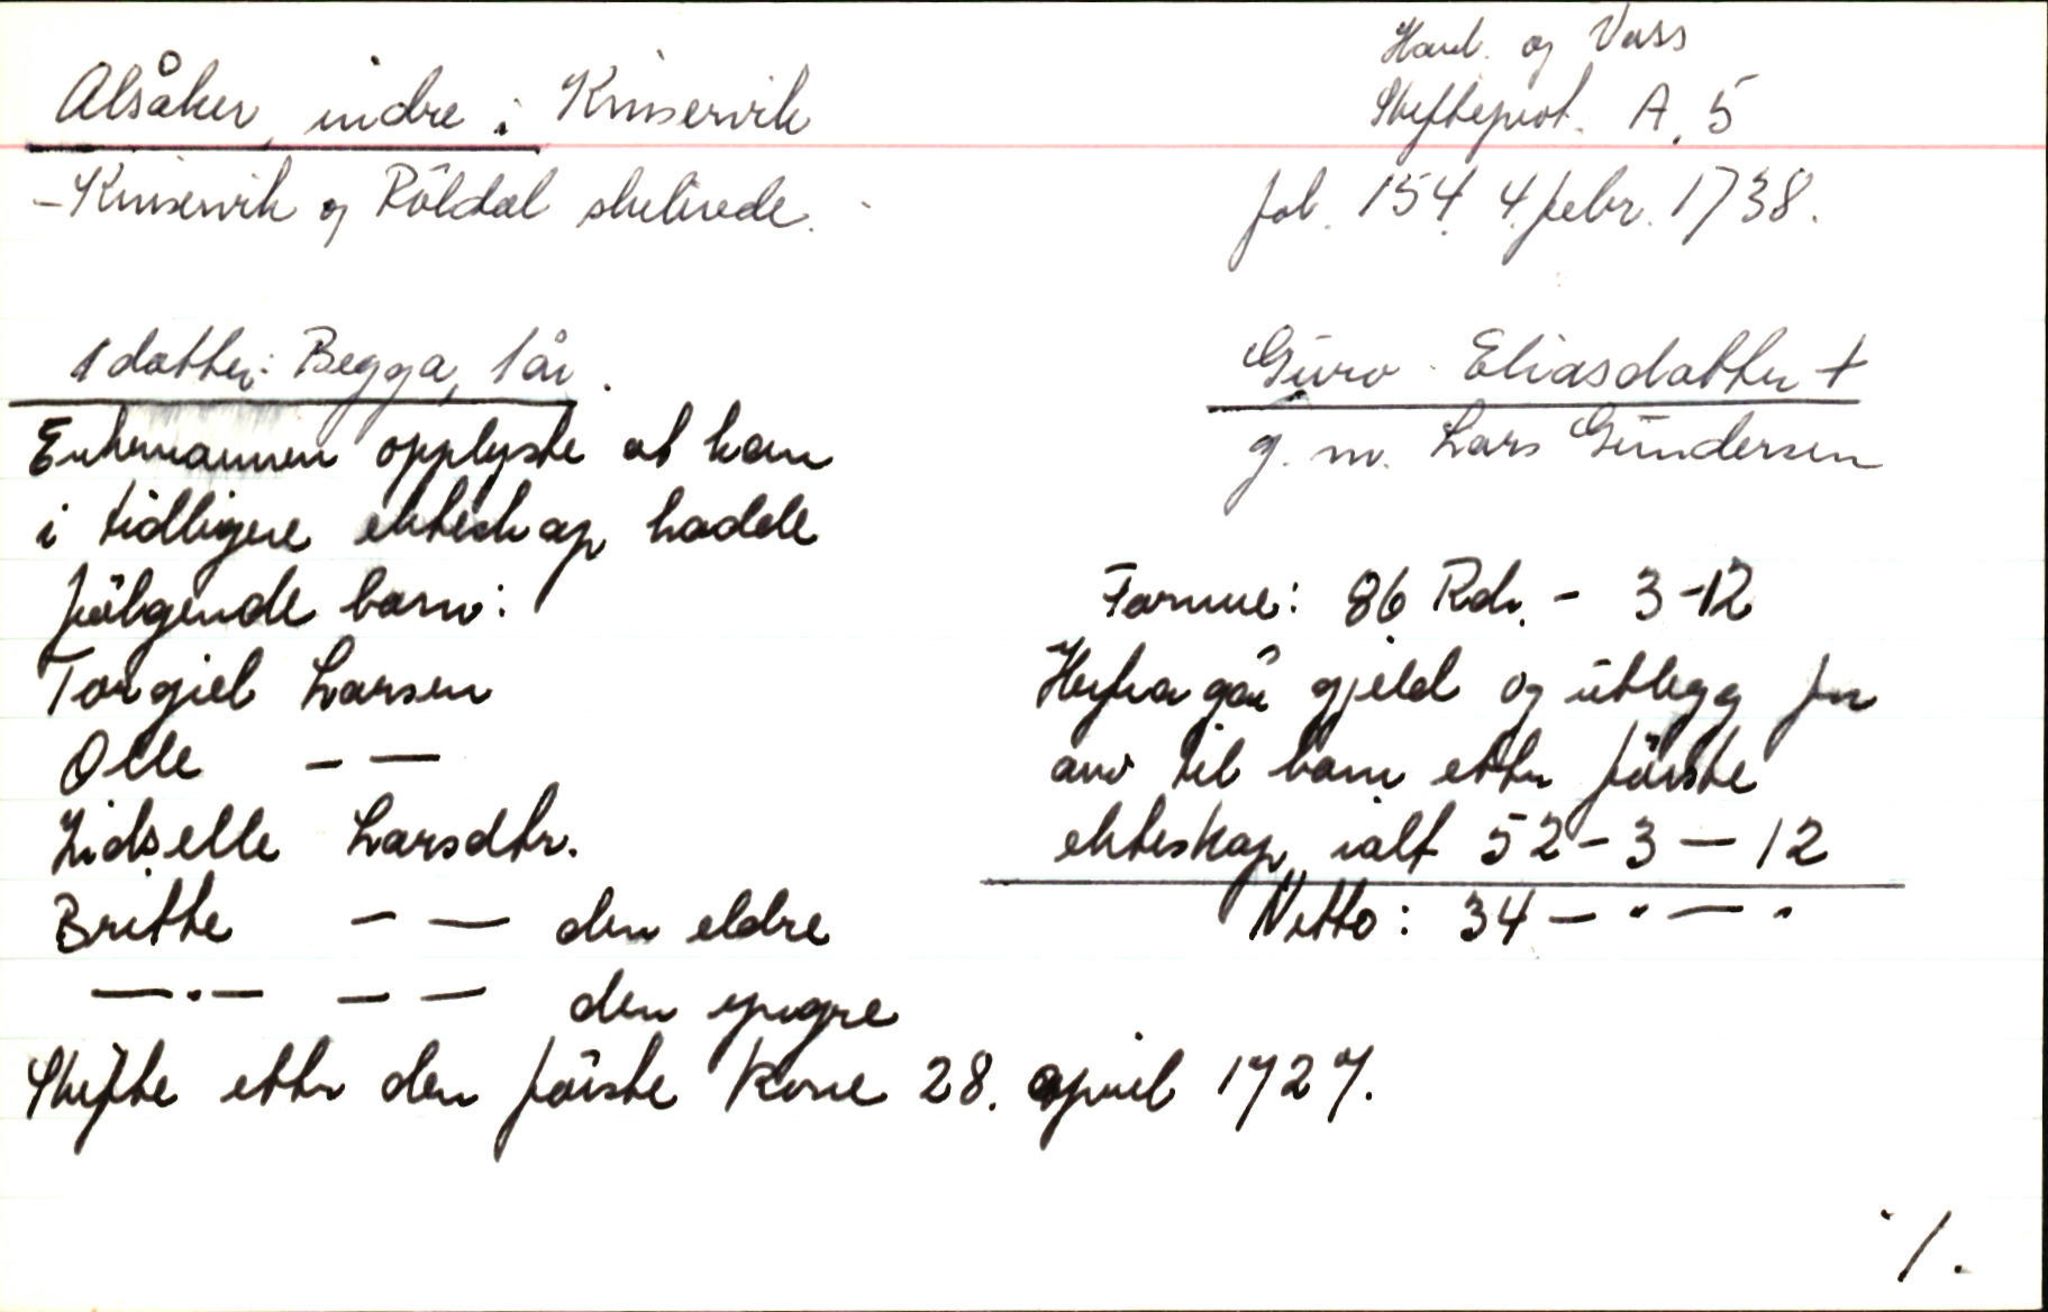 Alsåker, indre i Kinservik
Hard. og Voss
Skifteprot. A. 5
- Kinservik og Röldal skibrede.
fol. 154. 4. febr. 1738.
1 datter: Begga, 1 år.
Enkemannen opplyste at han
i tidligere ekteskap hadde
fölgende barn:
Torgiel Larsen
Olle — —
Zidselle Larsdtr.
Britte — — den eldre
—.— — — den yngre
Skifte etter den förste kone 28. april 1727.
Guro Eliasdatter +
g. m. Lars Gundersen
Formue: 86 Rdr. - 3-12
Herfra går gjeld og utlegg for
arv til barn etter förste
ekteskap ialt 52 - 3 — 12
Netto: 34 — " — "
./.